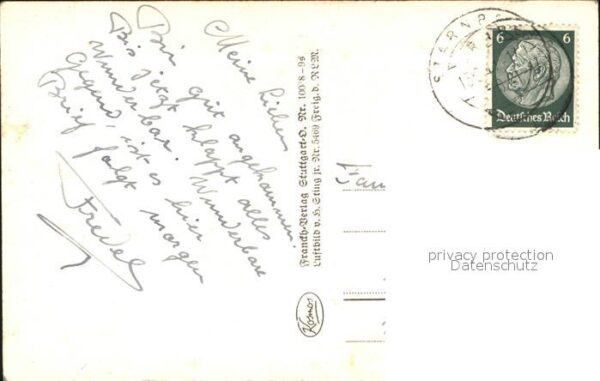 Meine Lieben
Bin gut angekommen.
Bis jetzt klappt alles
wunderbar. Wunderbare
Gegend, ist es hier
Brief folgt morgen
Fredel
Franckh-Verlag Stuttgart-O. Nr. 100/8-95
Luftbild v. H. Sting jr. Nr. 5469 Freig. d. RLM.
Kosmos
STARNB
6 6
Deutsches Reich
Fam
privacy protection
Datenschutz